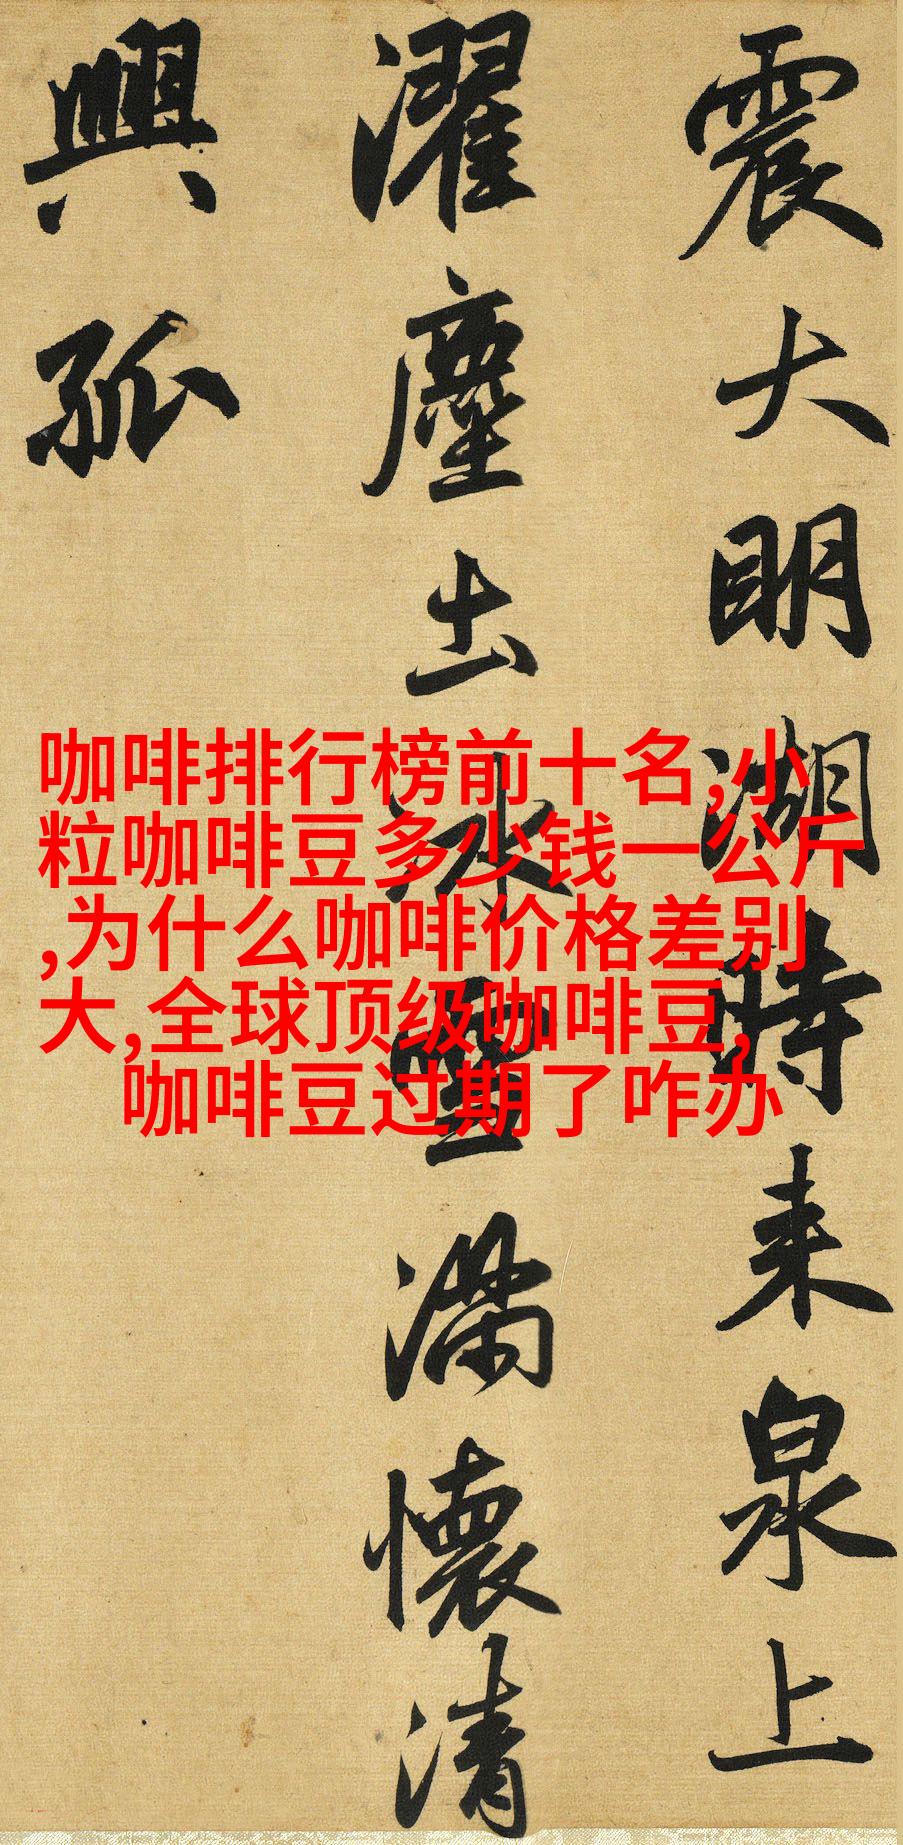 震大明湖時来泉上
濯塵土冰雪满懷清
興孤
咖啡排行榜前十名,小
粒咖啡豆多少钱一公斤
,为什么咖啡价格差别
大,全球顶级咖啡豆,
咖啡豆过期了咋办